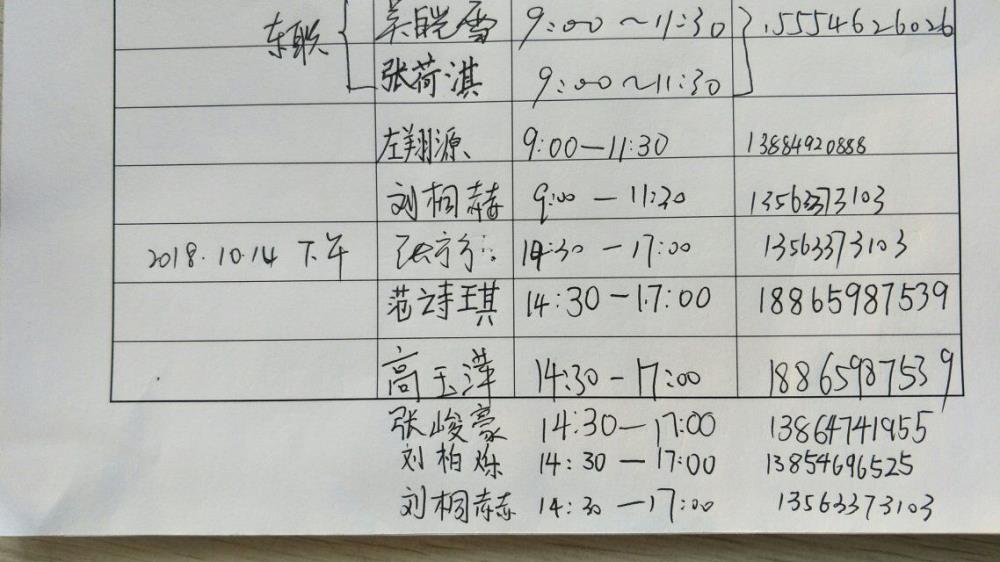 东联 吴皑雪 9:00～11:30 15554626026
张荷淇 9:00～11:30
左翔源 9:00—11:30 13884920888
刘桐赫 9:00—11:30 13563373103
2018.10.14 下午 14:30—17:00 13563373103
范诗琪 14:30—17:00 18865987539
高玉萍 14:30—17:00 18865987539
张峻豪 14:30—17:00 13864741955
刘柏烁 14:30—17:00 13854696525
刘桐赫 14:30—17:00 13563373103